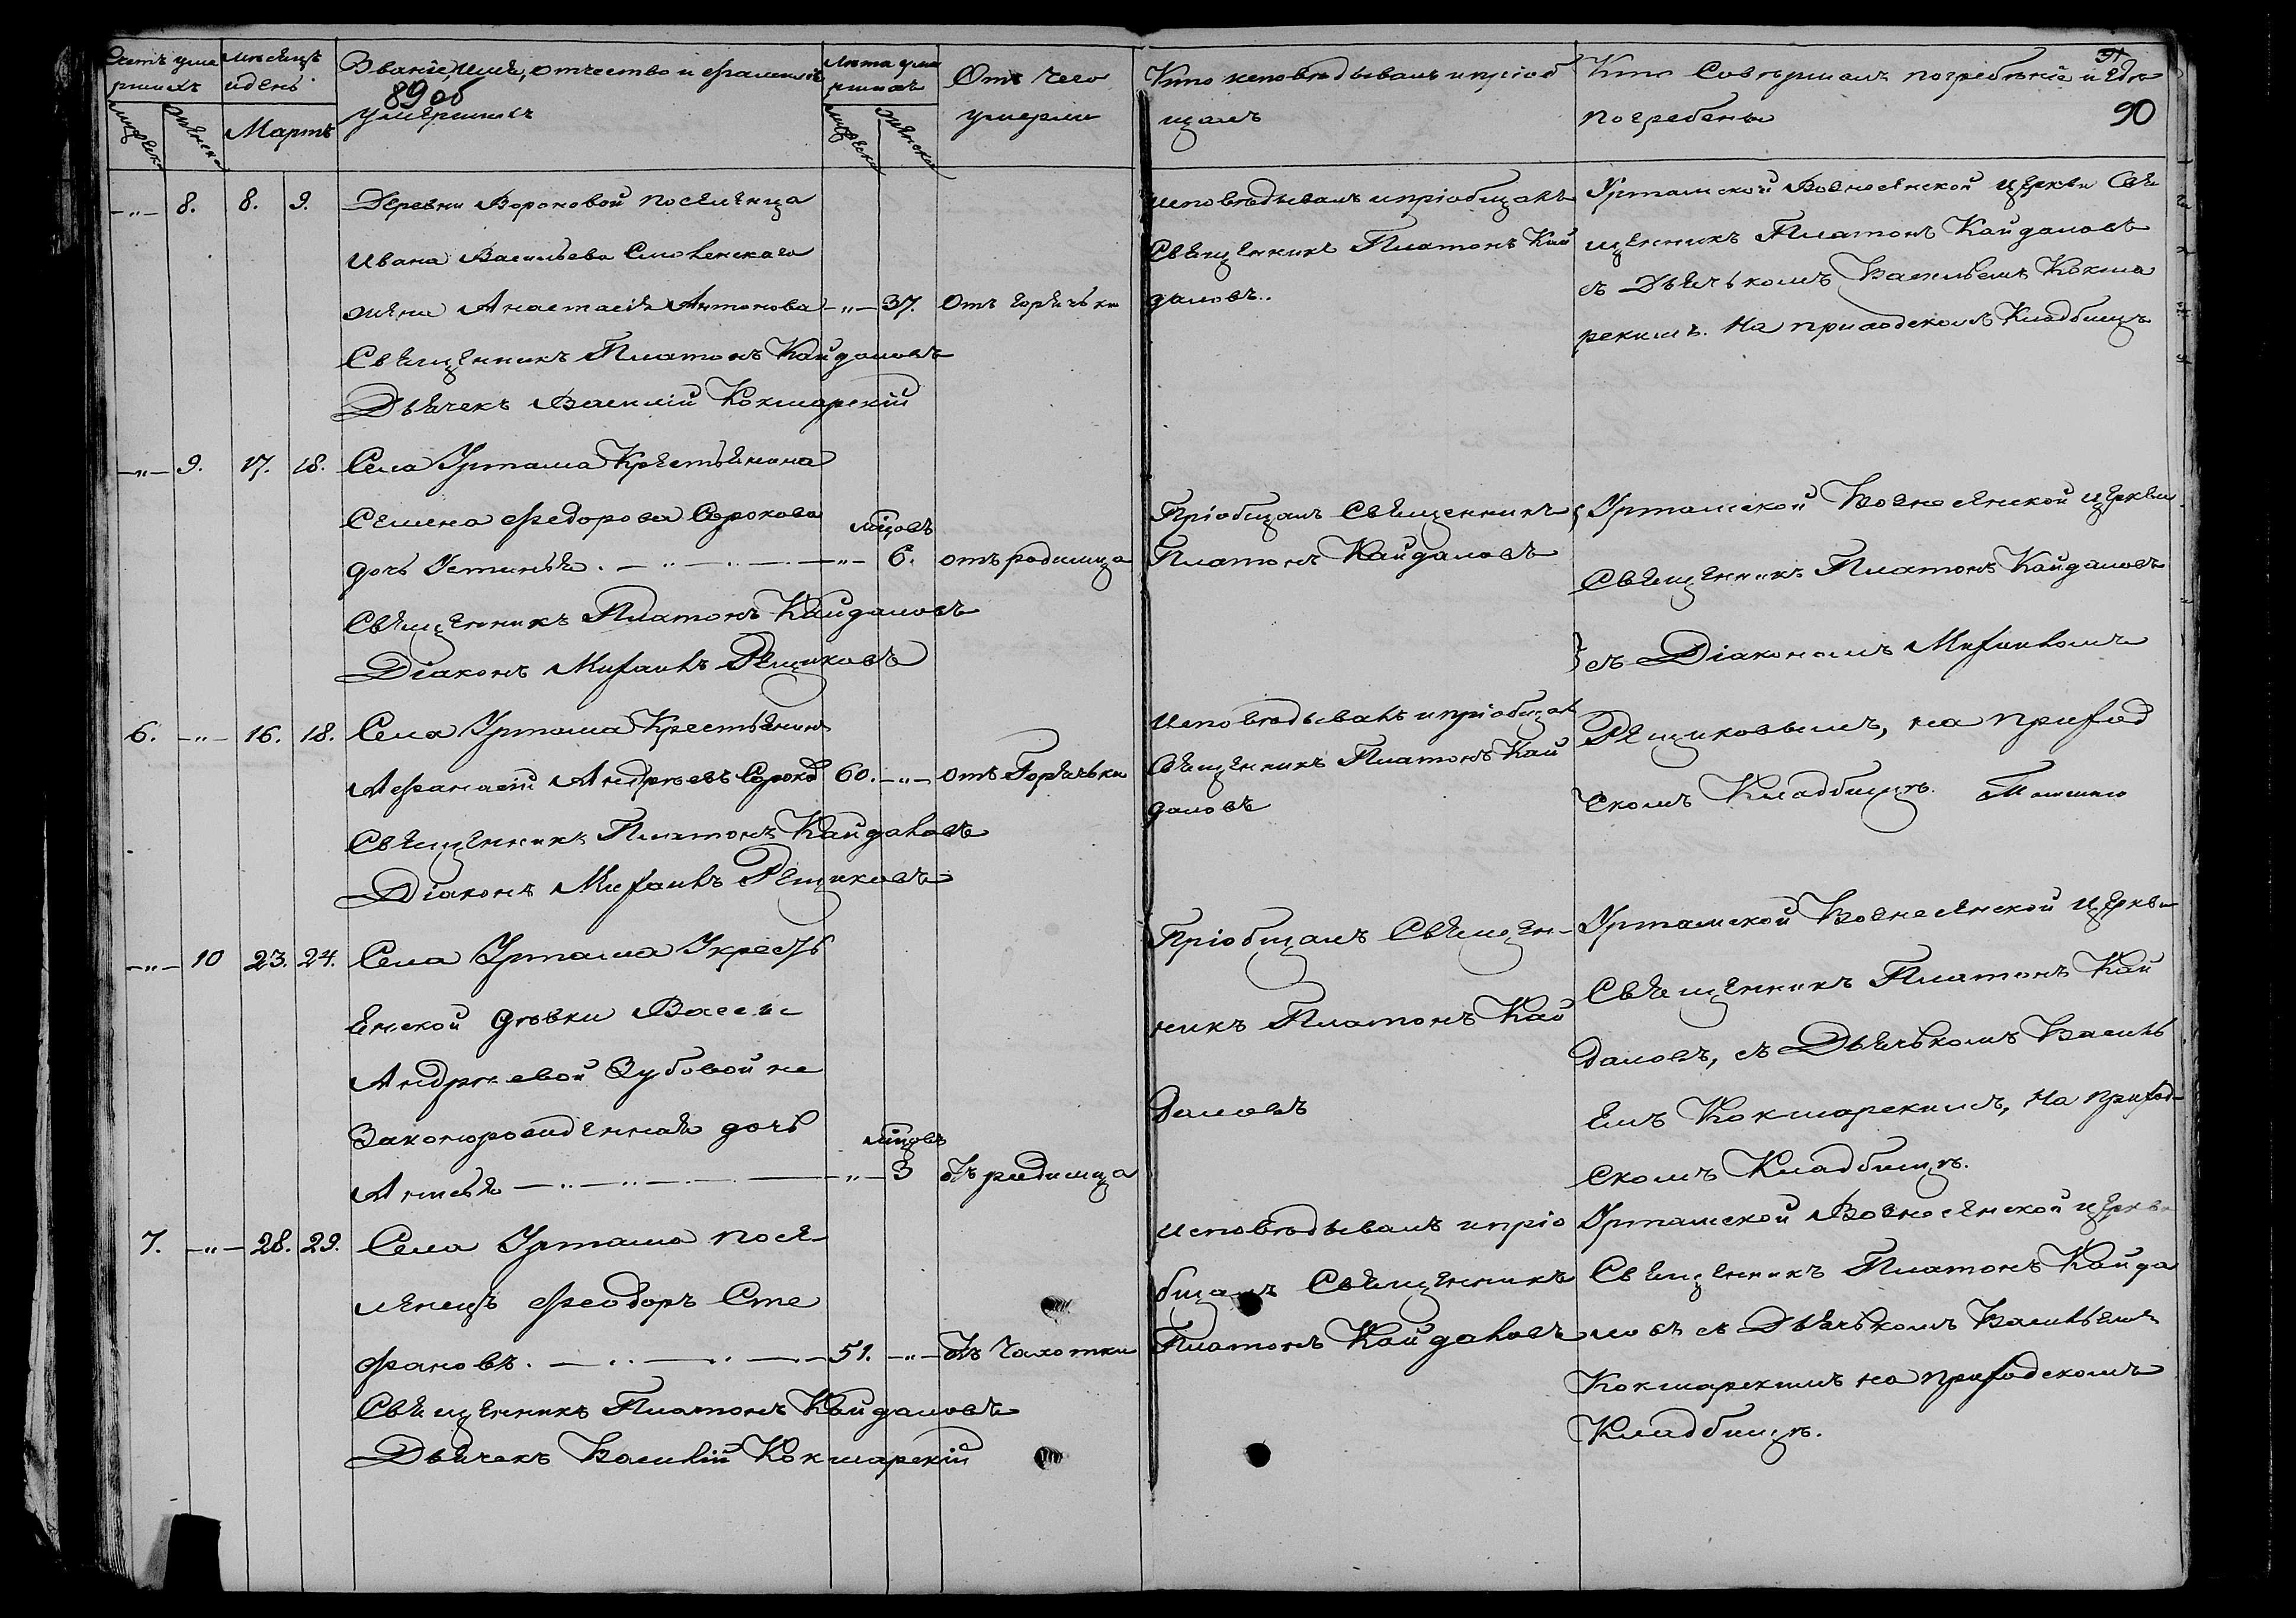 Счетъ уме
ршихъ
Мужеска
Женска
Мѣсяцъ
и день
Мартъ
Званіе, имя, отчество и фамилія
89 об
умершихъ
Лѣта уме
ршихъ
Мужеска
Женска
Отъ чего
умерли
Кто исповѣдывалъ и пріоб
щалъ
Кто совершалъ погребеніе и гдѣ
погребены
90
-"- 8. 8. 9. Деревни Вороновой поселенца
Ивана Васильева Смоленскаго
жена Анастасія Антонова -"- 37. Отъ горячьки
Священникъ Платонъ Кайдаловъ
Дьячекъ Василій Кокшарскій
исповѣдывалъ и пріобщалъ
Священникъ Платонъ Кай
даловъ.
Уртамской Вознесенской церкви Свя
щенникъ Платонъ Кайдаловъ
съ Дьячькомъ Васильемъ Кокша
рскимъ. на приходскомъ Кладбищѣ
-"- 9. 17. 18. Села Уртама Крестьянина
Семена Федорова Сорокова
мѣсцовъ
дочь Устинья . — .. — .. — . — -"- 6. отъ родимца
Священникъ Платонъ Кайдаловъ
Діаконъ Михаилъ Рещиковъ
Пріобщалъ Священникъ
Платонъ Кайдаловъ
Уртамской Вознесенской церкви
Священникъ Платонъ Кайдаловъ
съ Діакономъ Михаиломъ
Рещиковымъ, на приход
скомъ Кладбищѣ.
6. -"- 16. 18. Села Уртама Крестьянинъ
Афанасій Андреевъ Сороко 60. -"- отъ Горячьки
Священникъ Платонъ Кайдаловъ
Діаконъ Михаилъ Рещиковъ
Исповѣдывалъ и пріобщал
Священникъ Платонъ Кай
даловъ
-"- 10 23. 24. Села Уртама Укресть
янской дѣвки Вассы
Андреевой Зубовой не
законорожденная дочь
мѣсцовъ
Анисья — .. — .. — . — -"- 3 отъ родимца
Пріобщалъ Священ-
никъ Платонъ Кай
даловъ
Уртамской Вознесенской церкви
Священникъ Платонъ Кай
даловъ, съ Дьячькомъ Василь
емъ Кокшарскимъ, на приход-
скомъ Кладбищѣ.
7. -"- 28. 29. Села Уртама посе-
ленецъ Феодоръ Сте
фановъ. — .. — .. — 51. -"- отъ Чахотки
Священникъ Платонъ Кайдаловъ
Дьячекъ Василій Кокшарскій
исповѣдывалъ и пріо
бщалъ Священникъ
Платонъ Кайдаловъ
Уртамской Вознесенской церкви
Священникъ Платонъ Кайда
ловъ съ Дьячькомъ Васильемъ
Кокшарскимъ на приходскомъ
Кладбищѣ.